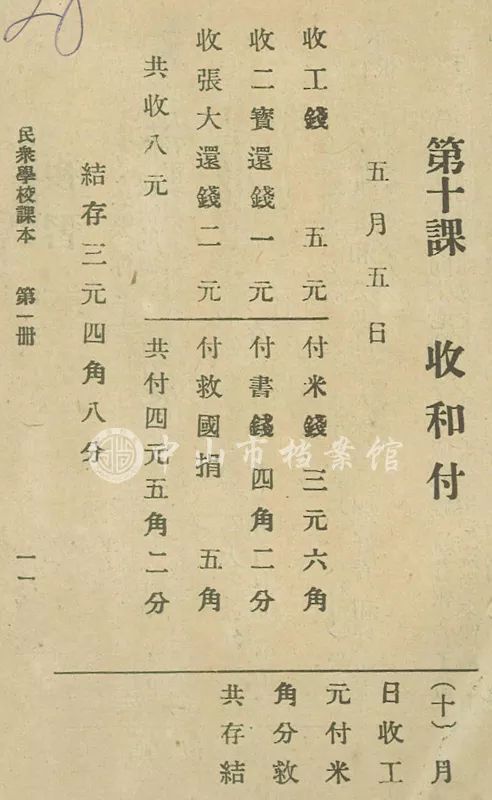 第十課 收和付
五月五日
收工錢 五元
收二寳還錢一元
收張大還錢二元
共收八元
付米錢 三元六角
付書錢 四角二分
付救國捐 五角
共付四元五角二分
結存三元四角八分
(十)月
日收工
元付米
角分救
共存結
民衆學校課本 第一冊 一一
中山市档案馆